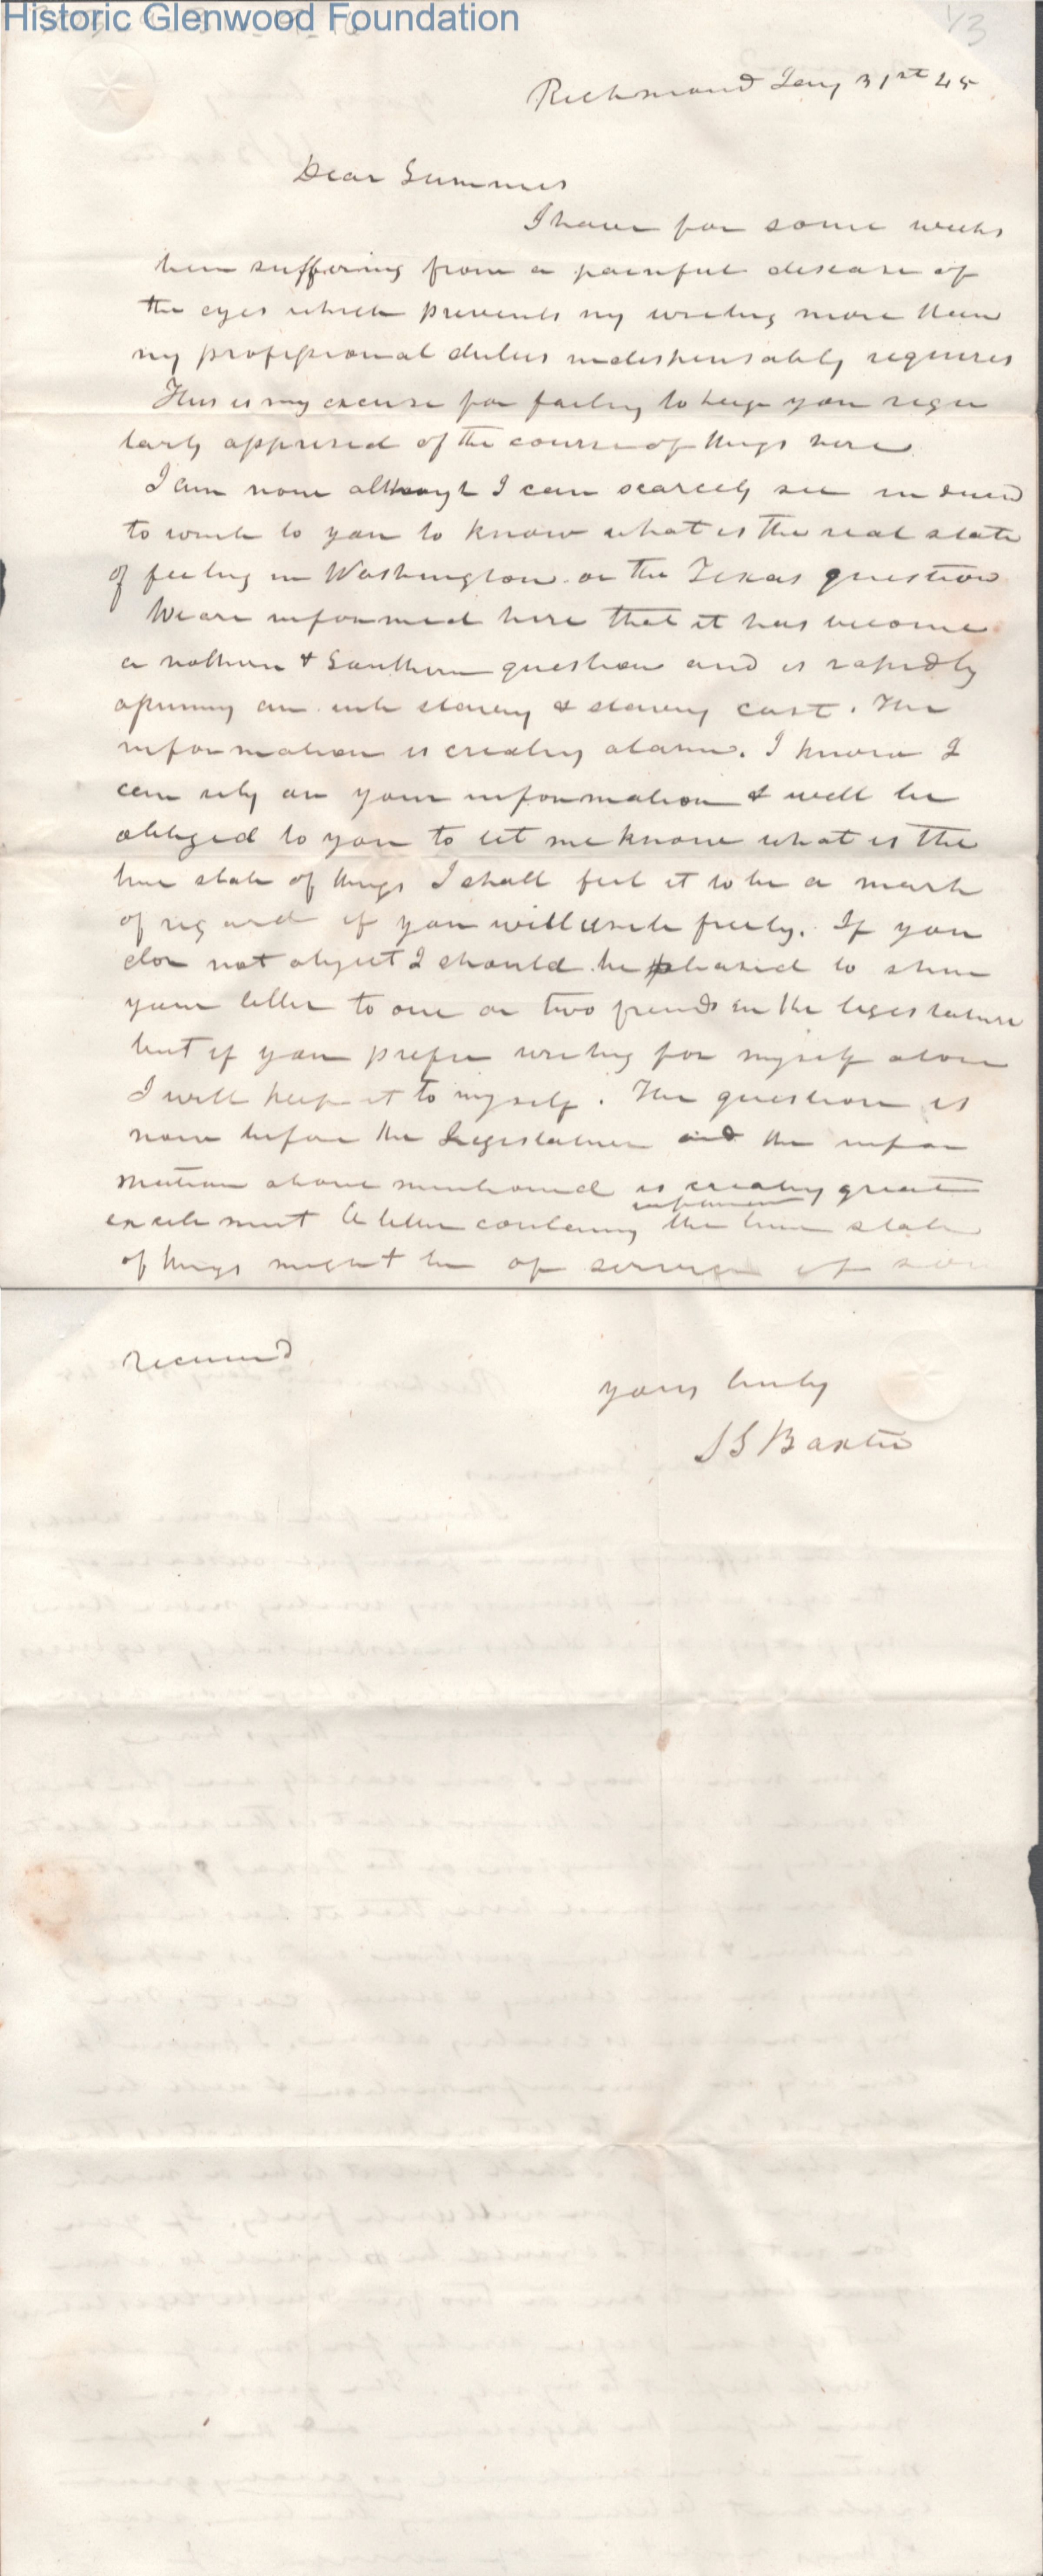 Historic Glenwood Foundation
1/3
Richmond Jany 31st 45
Dear Summers
I have for some weeks
been suffering from a painful disease of
the eyes which prevents my writing more than
my professional duties indispensably requires
This is my excuse for failing to keep you regu
larly apprised of the course of things here
I am now although I can scarcely see induced
to write to you to know what is the real state
of feeling in Washington on the Texas question
We are informed here that it has become
a nothern & Southern question and is rapidly
assuming an anti slavery & slavery cast. The
information is creating alarm. I know I
can rely on your information & will be
obliged to you to let me know what is the
true state of things I shall feel it to be a mark
of regard if you will write freely. If you
do not object I should be pleased to shew
your letter to one or two friends in the legislature
but if you prefer writing for myself alone
I will keep it to myself. The question is
now before the Legislature and the infor
mation above mentioned is creating great
excitement A letter containing the true state
of things might be of service if soon
received
yours truly
S S Baxter